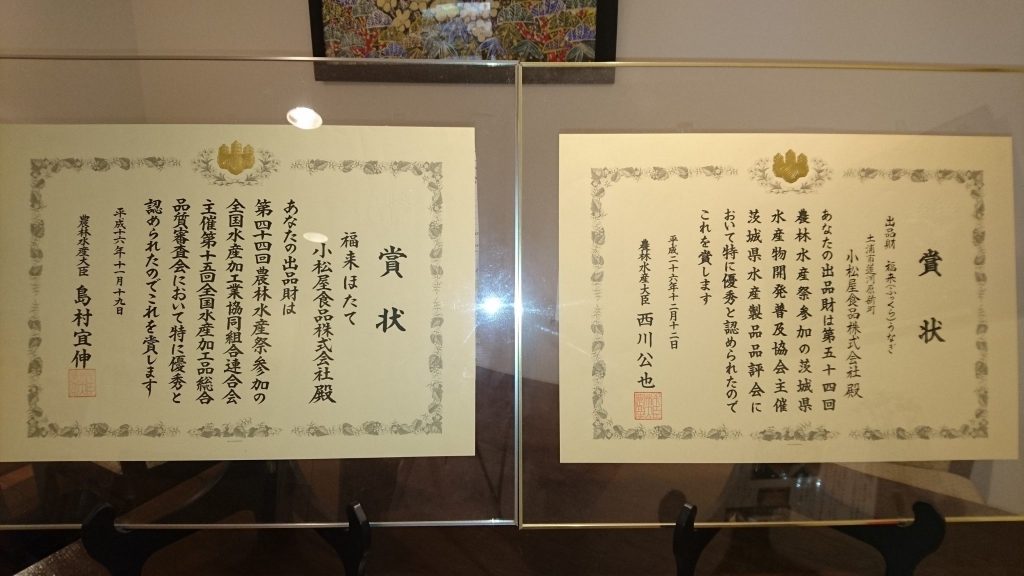 賞状
出品財 福来(ふっくら)うなぎ
土浦市蓮河原新町
小松屋食品株式会社 殿
あなたの出品財は第五十四回
農林水産祭参加の茨城県
水産物開発普及協会主催
茨城県水産製品品評会に
おいて特に優秀と認められたので
これを賞します
平成二十六年十二月十二日
農林水産大臣 西川公也
賞状
福来ほたて
小松屋食品株式会社 殿
あなたの出品財は
第四十四回農林水産祭参加の
全国水産加工業協同組合連合会
主催第十五回全国水産加工品総合
品質審査会において特に優秀と
認められたのでこれを賞します
平成十六年十一月十九日
農林水産大臣 島村宜伸